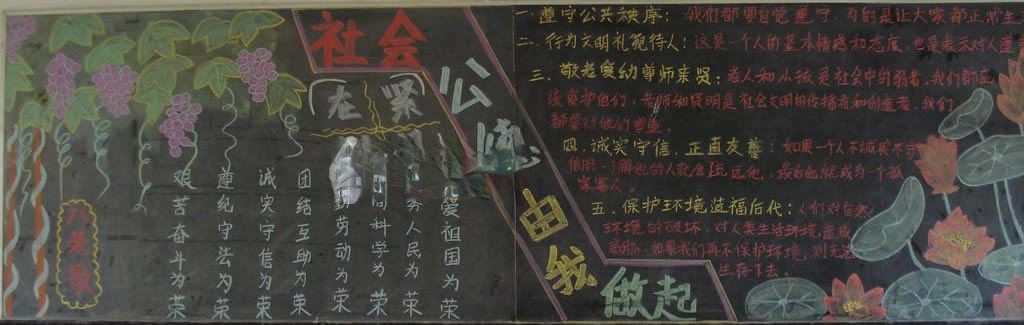 社会
公德
由我
做起
八荣歌
爱祖国为荣
务人民为荣
科学为荣
劳动为荣
团结互助为荣
诚实守信为荣
遵纪守法为荣
艰苦奋斗为荣
一.遵守公共秩序:我们都要自觉遵守,为的是让大家都正常生
二.行为文明礼貌待人:这是一个人的基本情感和态度,也是表示对人尊
三.敬老爱幼尊师束贤:老人和小孩是社会中的弱者,我们都应
该爱护他们,老师和贤明是社会文明的传播者和创造者,我们
都要对他们尊重.
四.诚实守信,正直友善:如果一个人不诚实不守
信用,了解他的人就会远他,最后他就成为一个孤
家寡人.
五.保护环境造福后代:人们对自然
环境的破坏,对人类生活环境造成
威胁,如果我们再不保护环境,则无法
生存下去.